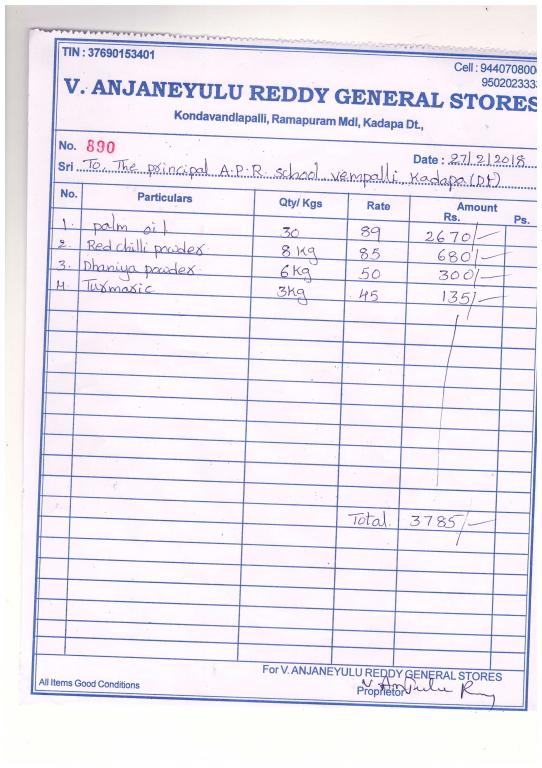 TIN : 37690153401
Cell : 944070800
950202333
V. ANJANEYULU REDDY GENERAL STORES
Kondavandlapalli, Ramapuram Mdl, Kadapa Dt.,
No. 890
Date : 27/2/2018
Sri To, The principal A.P.R. school, vempalli, Kadapa (Dt)
No. Particulars Qty/ Kgs Rate Amount
Rs. Ps.
1. palm oil 30 89 2670/-
2. Red chilli powder 8 Kg 85 680/-
3. Dhaniya powder 6 Kg 50 300/-
4. Turmaric 3 Kg 45 135/-
Total 3785/-
For V. ANJANEYULU REDDY GENERAL STORES
All Items Good Conditions
Proprietor